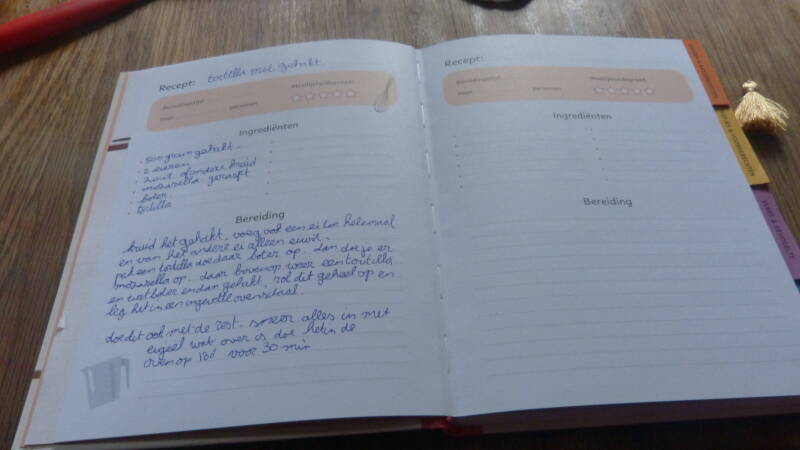 Recept: tortilla met gehakt.
Bereidingstijd: Moeilijkheidsgraad:
Voor: personen
Ingrediënten
. 500 gram gehakt.
. 2 eieren
. zout of ander kruid
. mozarella geraspt
. boter
tortilla
Bereiding
kruid het gehakt, voeg ook een ei toe helemaal
en van het andere ei alleen eiwit.
pak een tortilla doe daar boter op. dan doe je er
mozarella op. daar bovenop weer een tortilla
en wat boter en dan gehakt, rol dit geheel op en
leg het in een ingevette ovenschaal.
doe dit ook met de rest. smeer alles in met
eigeel wat over is doe het in de
oven op 180° voor 30 min
Recept:
Bereidingstijd: Moeilijkheidsgraad:
Voor: personen
Ingrediënten
Bereiding